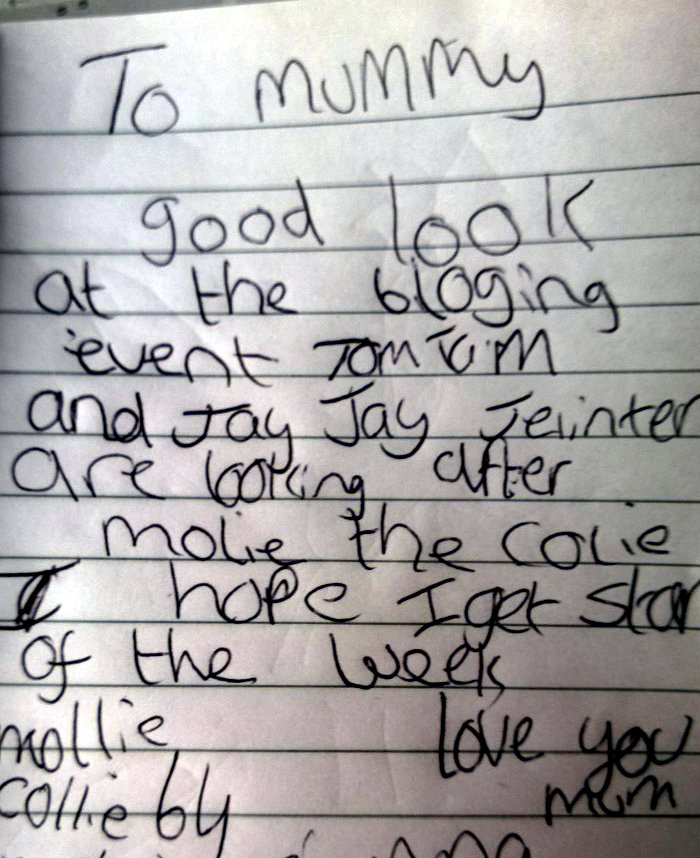 To mummy
good look
at the bloging
event Tom
and Jay Jay
are looking after
molie the colie
I hope I get star
of the week
mollie love you
collie by mum